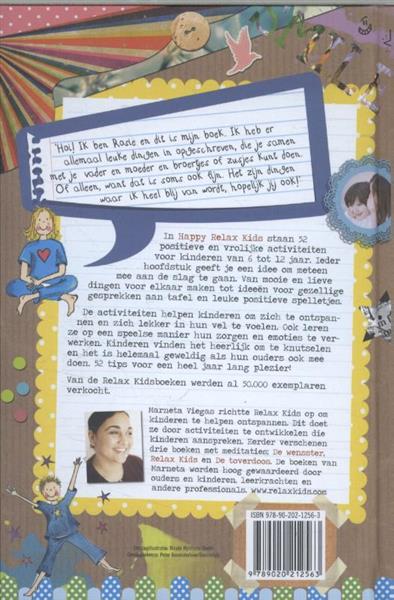 'Hoi! Ik ben Rosie en dit is mijn boek. Ik heb er
allemaal leuke dingen in opgeschreven, die je samen
met je vader en moeder en broertjes of zusjes kunt doen.
Of alleen, want dat is soms ook fijn. Het zijn dingen
waar ik heel blij van wordt, hopelijk jij ook!'
In Happy Relax Kids staan 52
positieve en vrolijke activiteiten
voor kinderen van 6 tot 12 jaar. Ieder
hoofdstuk geeft je een idee om meteen
mee aan de slag te gaan. Van mooie en lieve
dingen voor elkaar maken tot ideeën voor gezellige
gesprekken aan tafel en leuke positieve spelletjes.
De activiteiten helpen kinderen om zich te ontspan-
nen en zich lekker in hun vel te voelen. Ook leren
ze op een speelse manier hun zorgen en emoties te ver-
werken. Kinderen vinden het heerlijk om te knutselen
en het is helemaal geweldig als hun ouders ook mee
doen. 52 tips voor een heel jaar lang plezier!
Van de Relax Kidsboeken werden al 50.000 exemplaren
verkocht.
Marneta Viegas richtte Relax Kids op om
kinderen te helpen ontspannen. Dit doet
ze door activiteiten te ontwikkelen die
kinderen aanspreken. Eerder verschenen
drie boeken met meditaties; De wensster,
Relax Kids en De toverdoos. De boeken van
Marneta worden hoog gewaardeerd door
ouders en kinderen, leerkrachten en
andere professionals. www.relaxkids.com
ISBN 978-90-202-1256-3
9 789020 212563